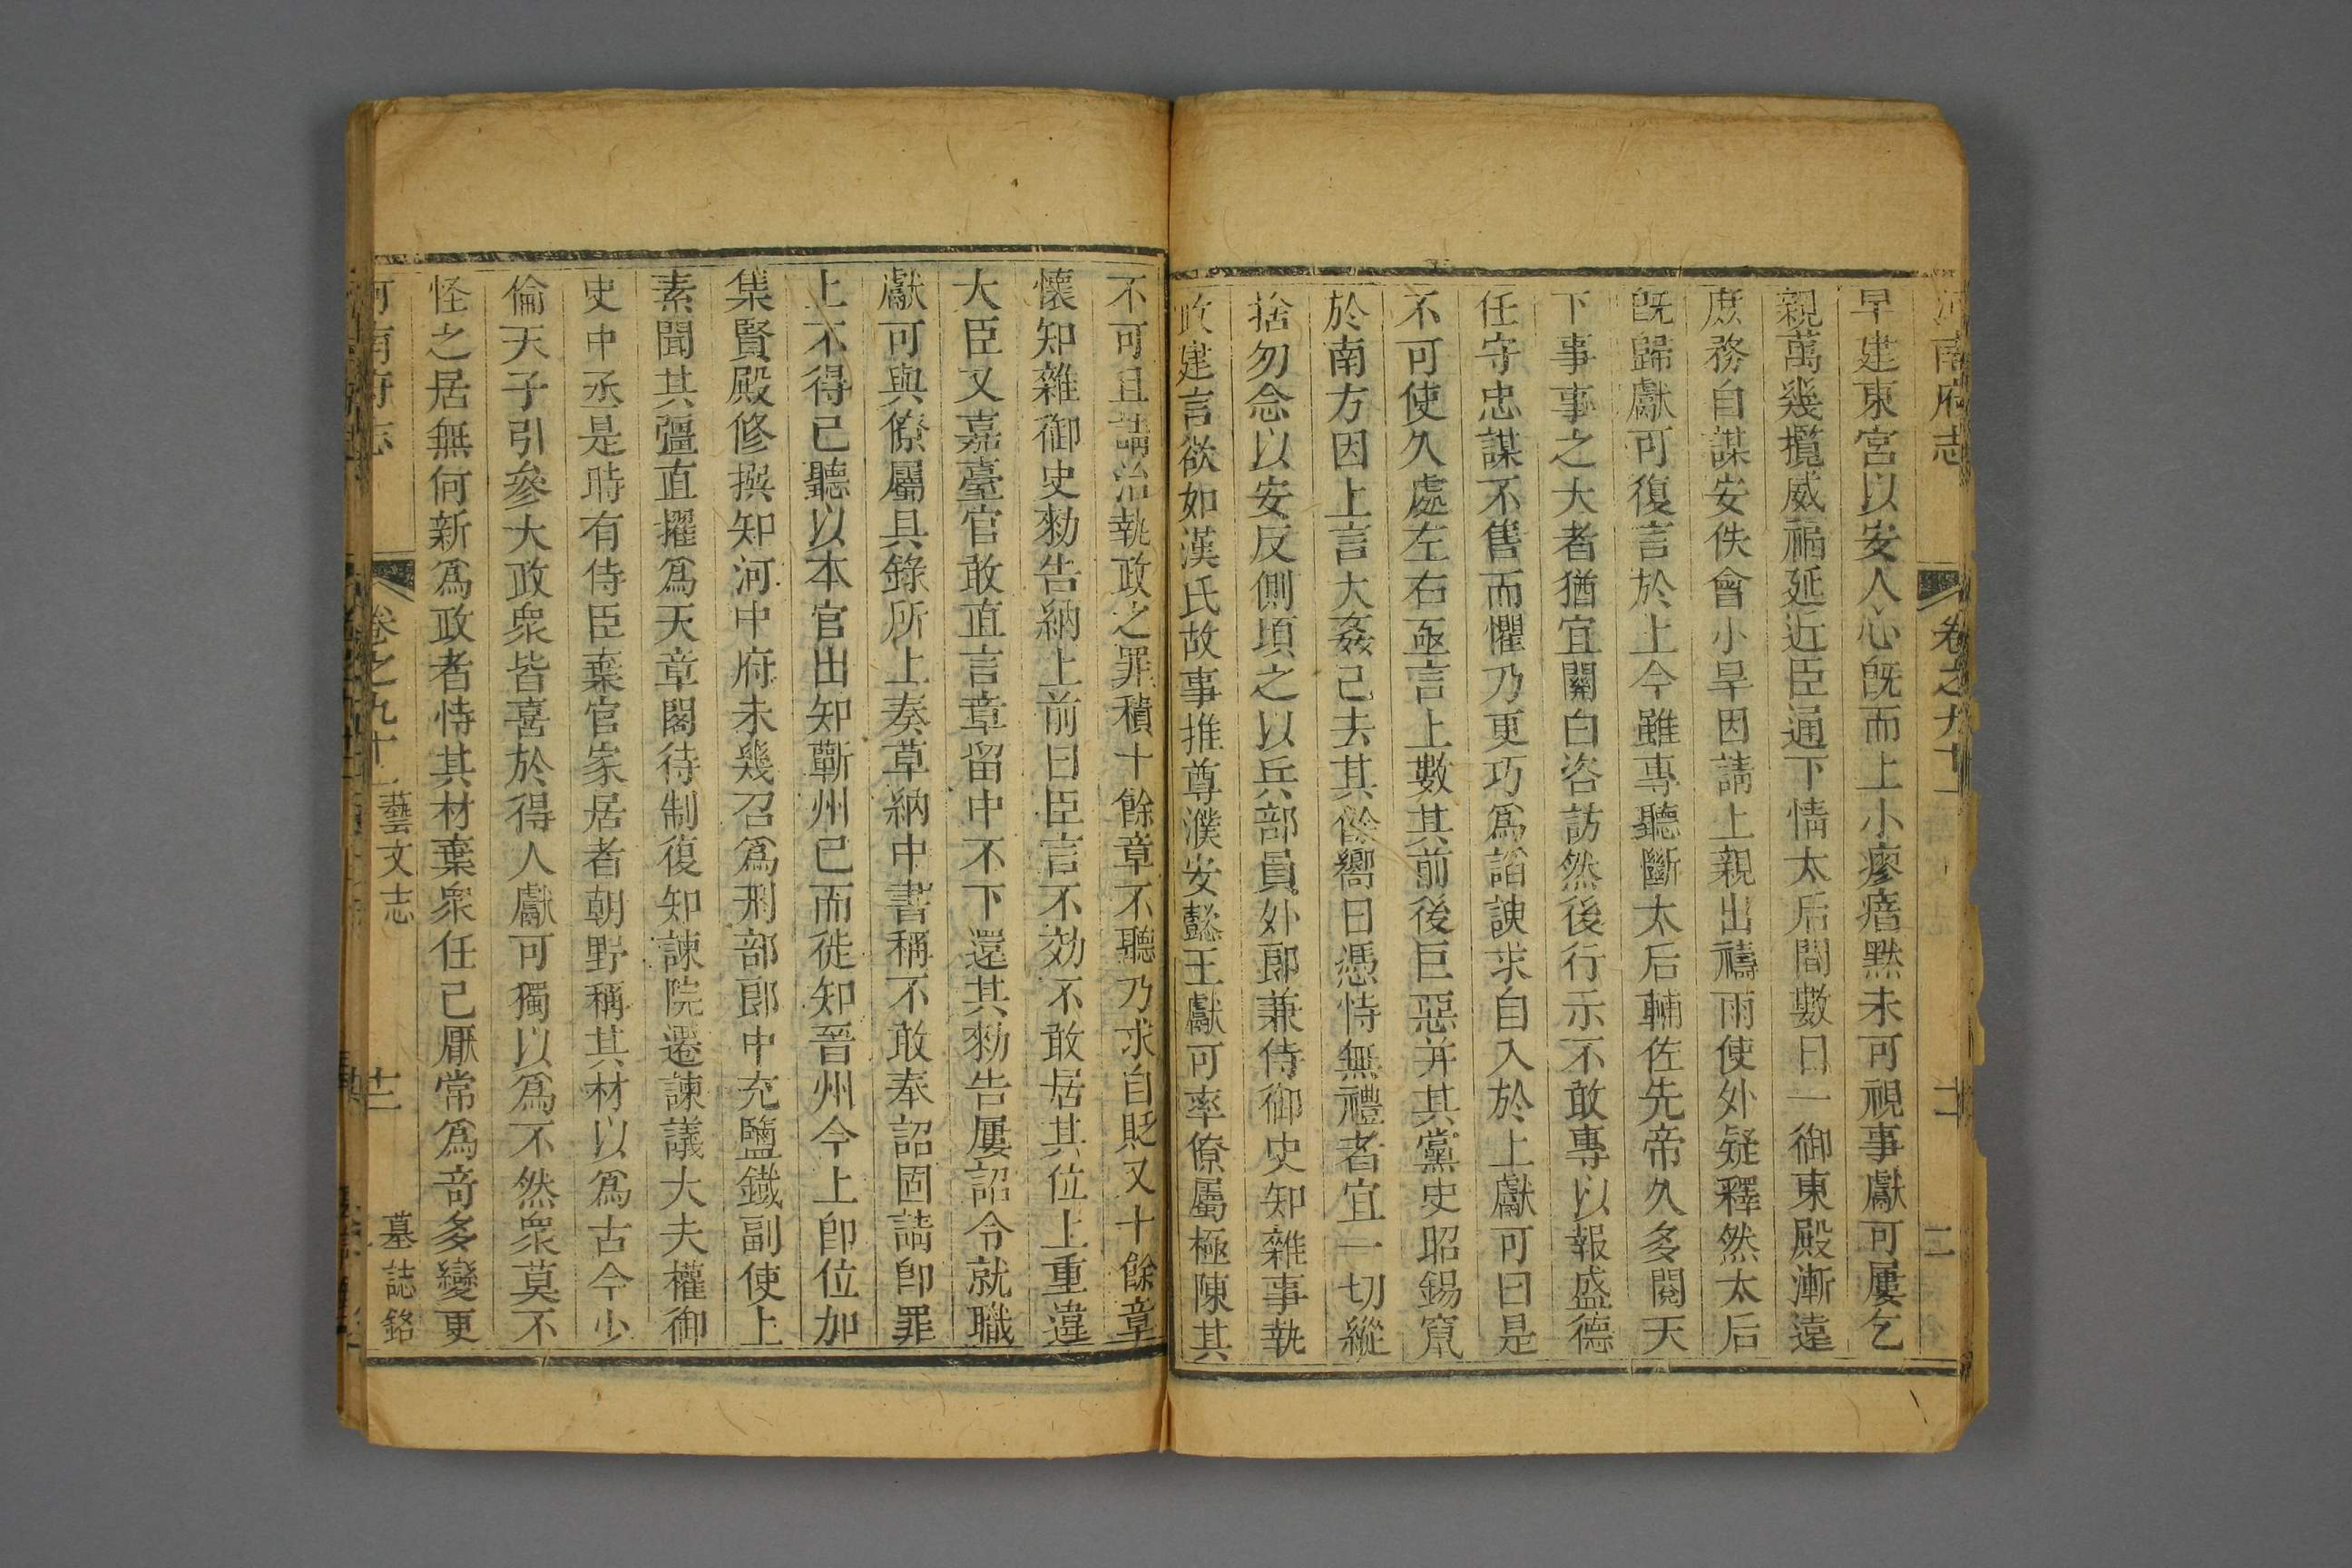 河南府志 卷之九十一 二
早建東宮以安人心旣而上小瘳瘖默未可視事獻可屢乞
親萬幾攬威福延近臣通下情太后間數日一御東殿漸遠
庶務自謀安佚會小旱因請上親出禱雨使外疑釋然太后
旣歸獻可復言於上今雖專聽斷太后輔佐先帝久多閱天
下事事之大者猶宜關白咨訪然後行示不敢專以報盛德
任守忠謀不售而懼乃更巧爲諂諛求自入於上獻可曰是
不可使久處左右亟言上數其前後巨惡并其黨史昭錫竄
於南方因上言大姦已去其餘嚮日憑恃無禮者宜一切縱
捨勿念以安反側頃之以兵部員外郎兼侍御史知雜事執
政建言欲如漢氏故事推尊濮安懿王獻可率僚屬極陳其
不可且請治執政之罪積十餘章不聽乃求自貶又十餘章
懷知雜御史勑告納上前曰臣言不効不敢居其位上重違
大臣又嘉臺官敢直言章留中不下還其勑告屢詔令就職
獻可與僚屬具錄所上奏草納中書稱不敢奉詔固請卽罪
上不得已聽以本官出知蘄州已而徙知晉州今上卽位加
集賢殿修撰知河中府未幾召爲刑部郎中充鹽鐵副使上
素聞其彊直擢爲天章閣待制復知諫院遷諫議大夫權御
史中丞是時有侍臣棄官家居者朝野稱其材以爲古今少
倫天子引參大政衆皆喜於得人獻可獨以爲不然衆莫不
怪之居無何新爲政者恃其材棄衆任己厭常爲奇多變更
河南府志 卷之九十一 藝文志 十二 墓誌銘